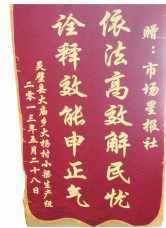 赠：市场星报社
依法高效解民忧
诠释效能申正气
灵璧县大庙乡大杨村小梁生产组
二零一三年五月二十八日